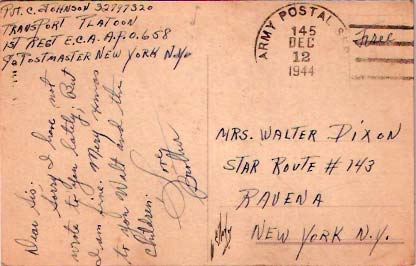 PVT. C. JOHNSON 32797320
TRANSPORT PLATOON
1ST REGT E.C.A. A.P.O. 658
℅ POSTMASTER NEW YORK N.Y.
ARMY POSTAL
145
DEC
12
1944
Free
Dear Sis.
Sorry I have not
wrote to you lately; But
I am fine. Merry Xmas
to you Walt and the
children.
Love
Brother
MRS. WALTER DIXON
STAR ROUTE # 143
RAVENA
NEW YORK N.Y.